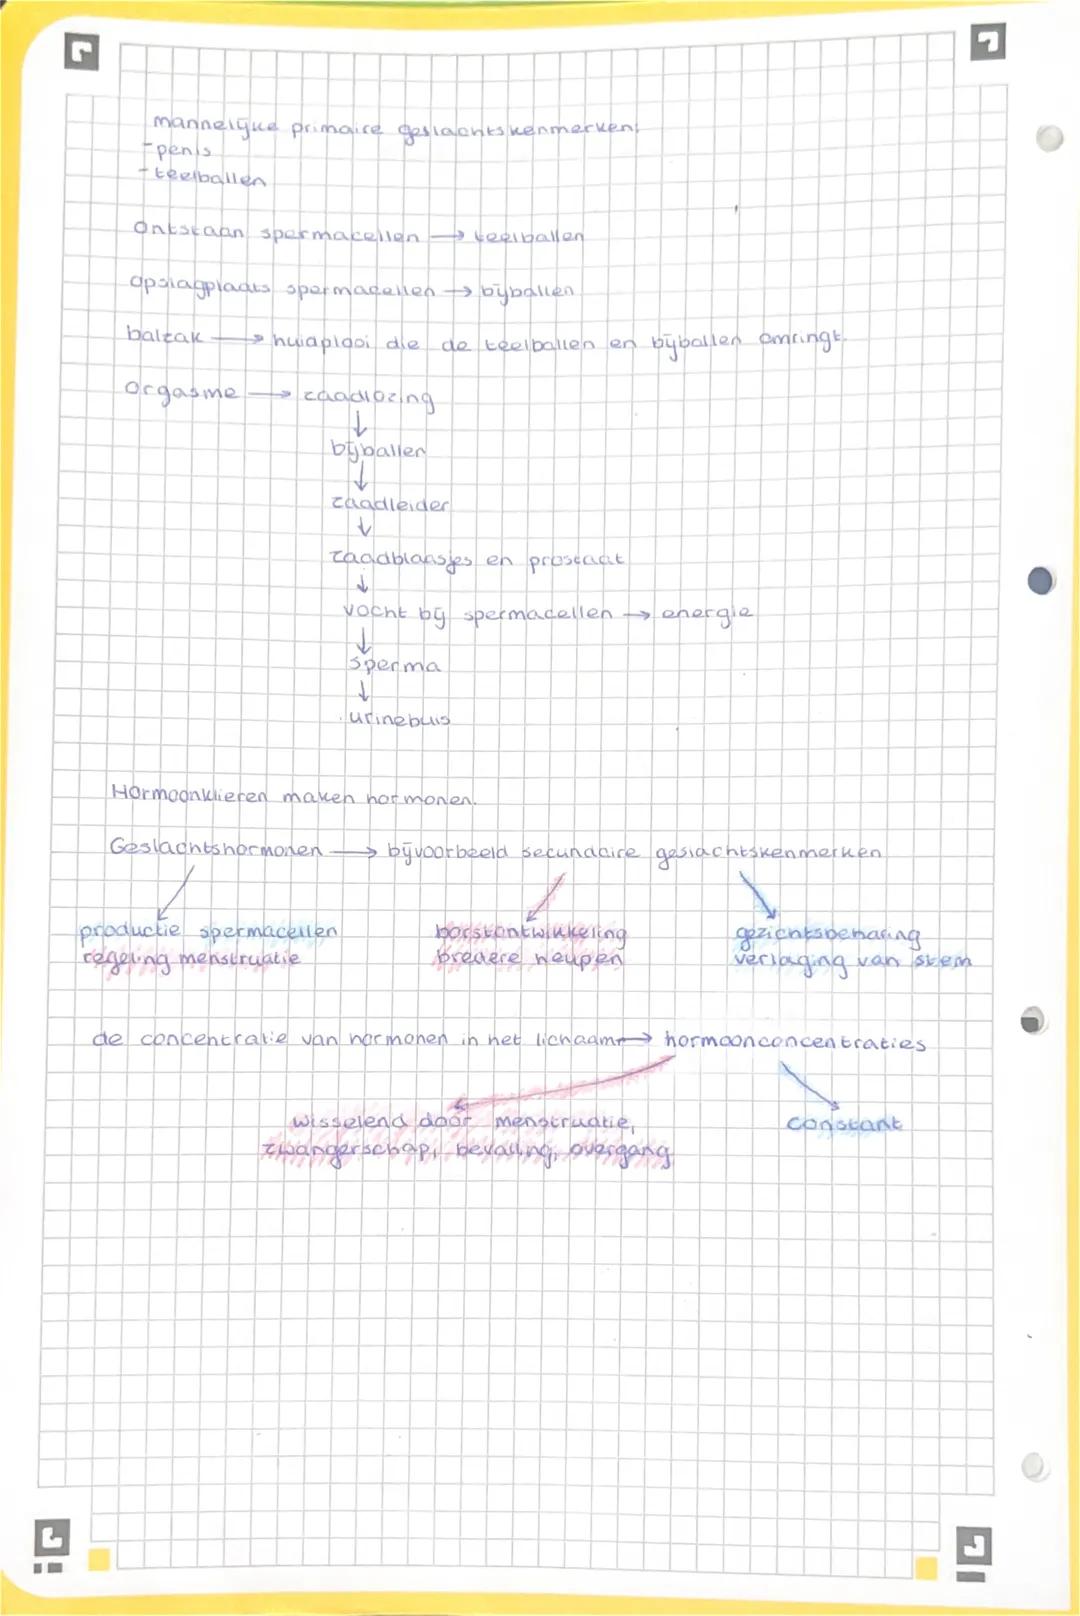 mannelijke primaire geslachtskenmerken:
- penis
- teelballen
Ontstaan spermacellen → teelballen
opslagplaats spermacellen → bijballen
balzak → huidplooi die de teelballen en bijballen omringt.
orgasme → zaadlozing
↓
bijballen
↓
zaadleider
↓
zaadblaasjes en prostaat
↓
vocht bij spermacellen → energie
↓
sperma
↓
urinebuis
Hormoonklieren maken hormonen.
Geslachtshormonen → bijvoorbeeld secundaire geslachtskenmerken
productie spermacellen
regeling menstruatie
borstontwikkeling
bredere heupen
gezichtsbeharing
verlaging van stem
de concentratie van hormonen in het lichaam → hormoonconcentraties
wisselend door menstruatie,
zwangerschap, bevalling, overgang
constant